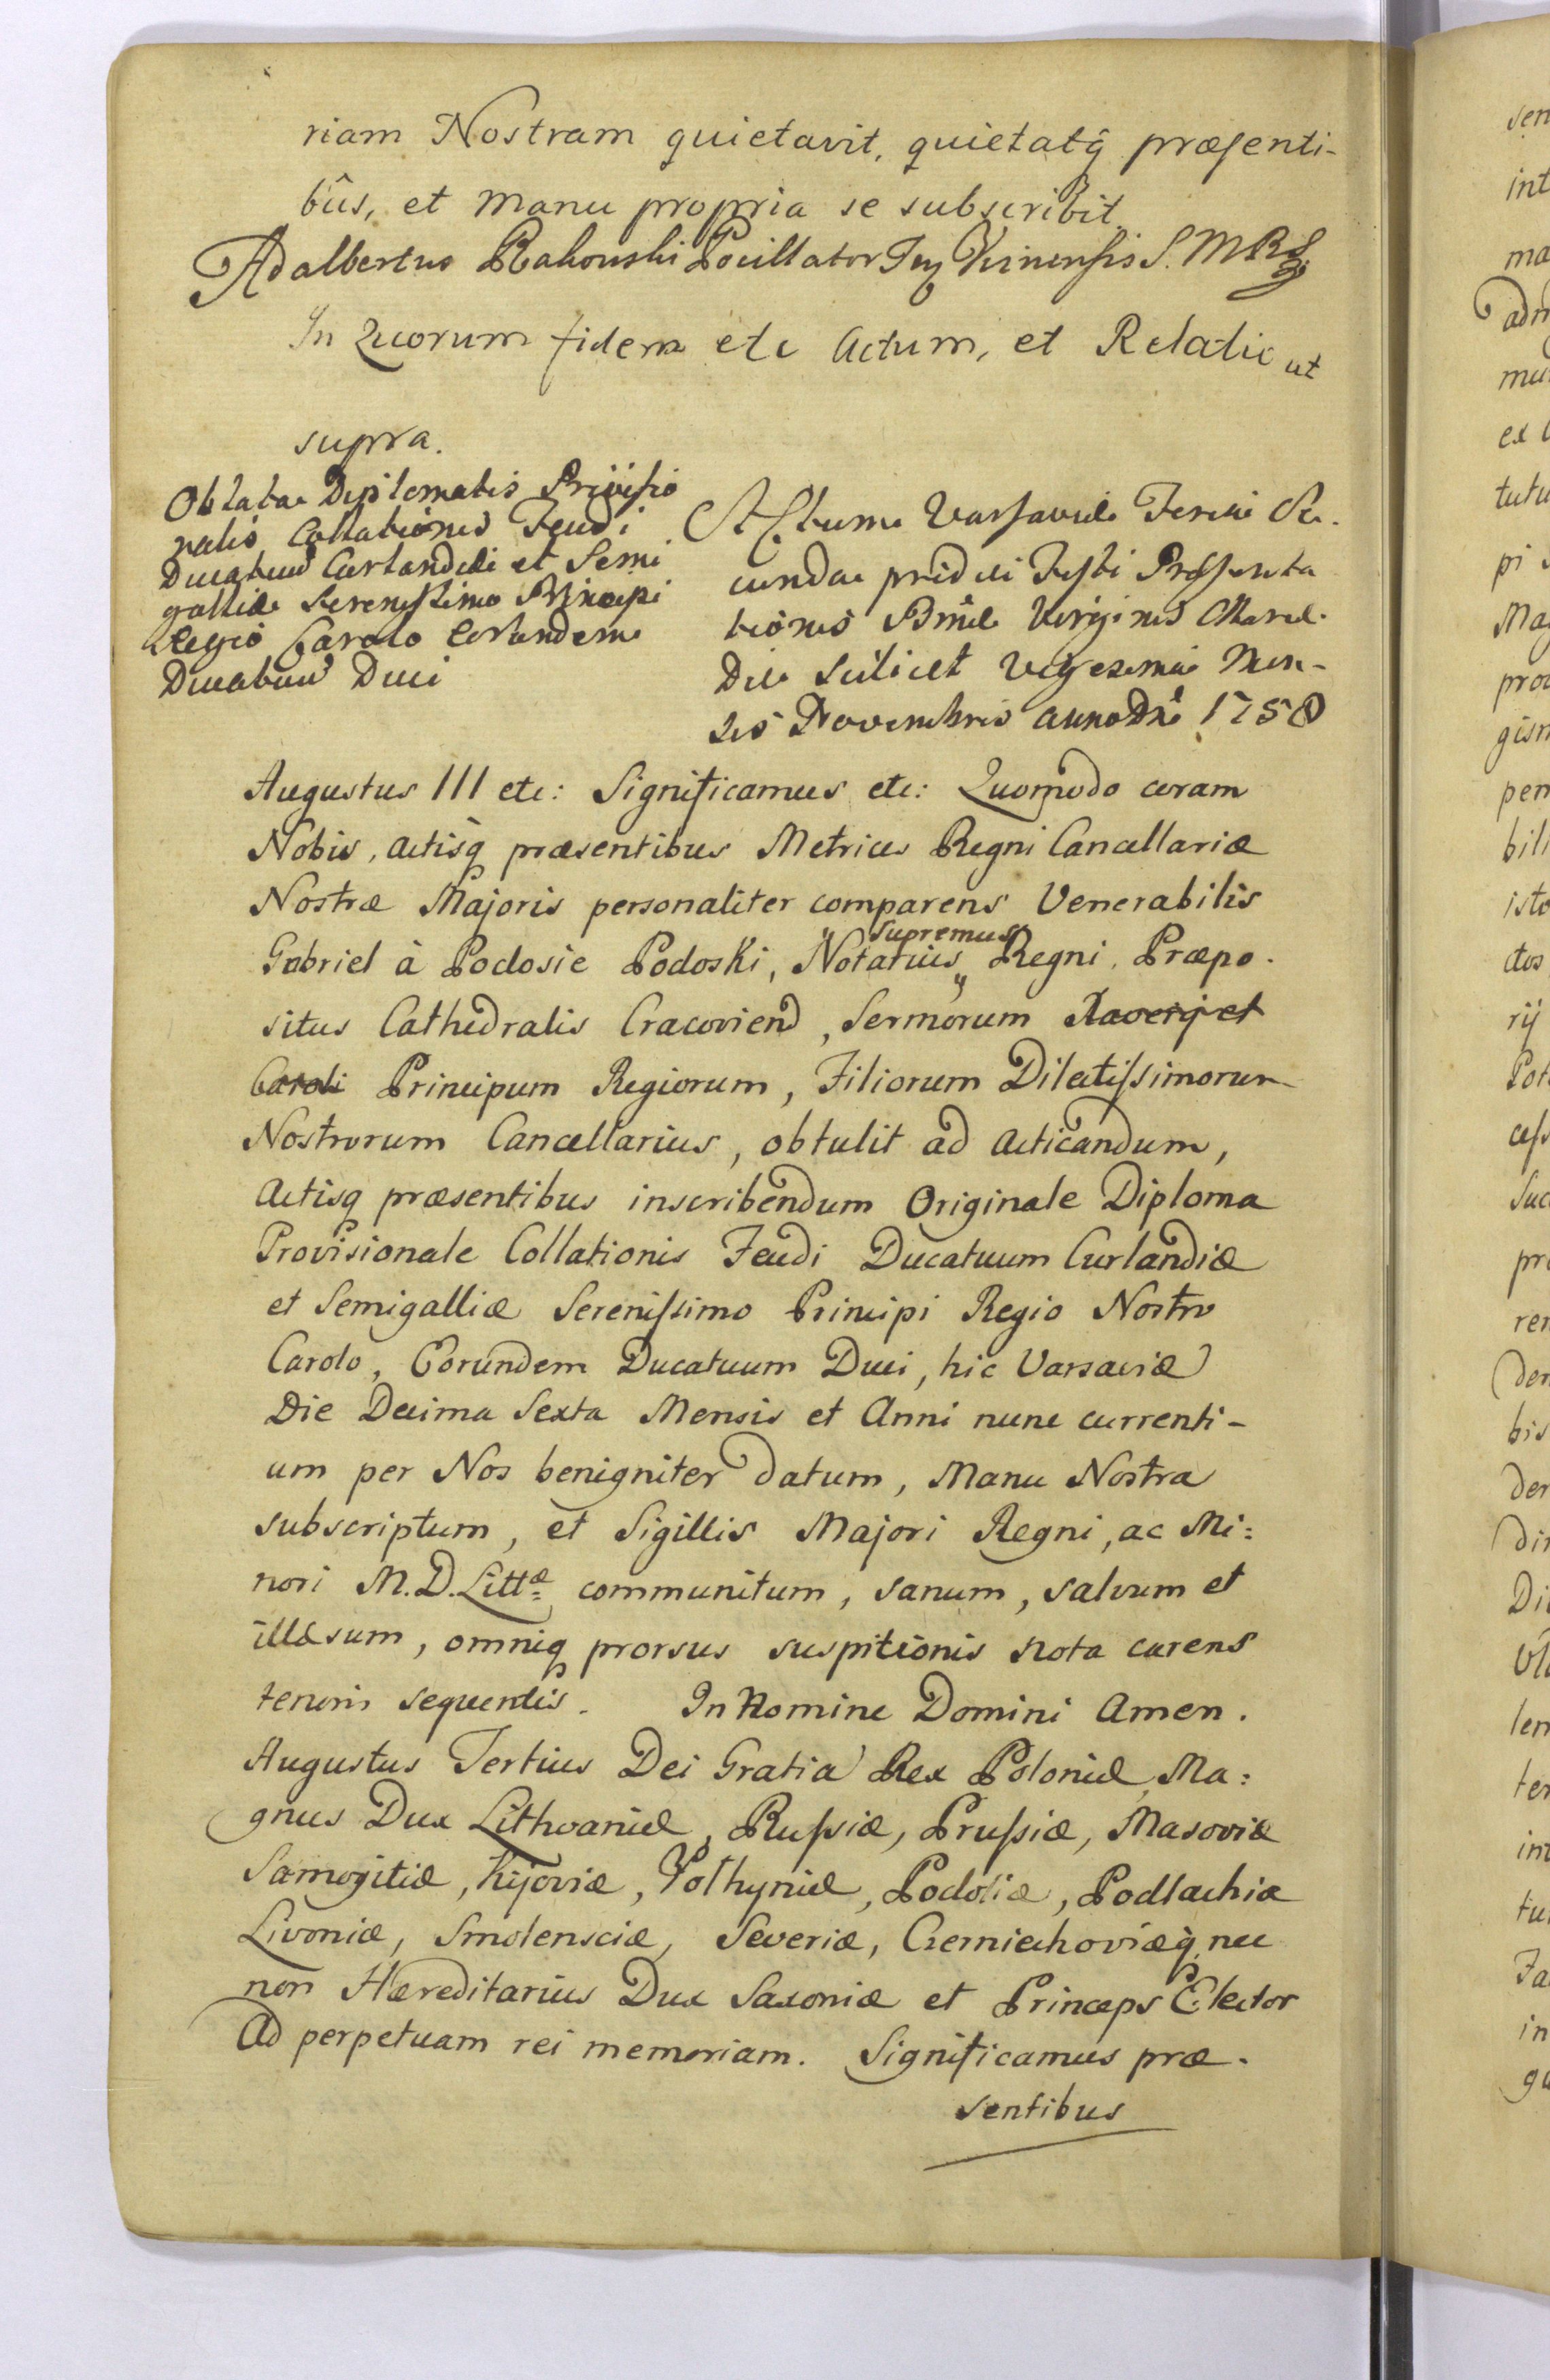 riam Nostram quietavit, quietatq̂ præsenti-
bûs, et manu propria se subscribit.
Adalbertus Rakowski Pocillator S. M R
In Quorum fidem etc Actum, et Relatio ut
supra.
Oblata Diplomatis Provisio
nalis Collationis Feudi
Ducatuum Curlandiæ et Semi
galliæ Serenissimo Principi
Regio Carolo Eorundem
Ducatuum Duci
Actum Varsaviæ Feria Se-
cunda pridie Festi Præsenta
tionis Bmæ Virginis Mariæ.
Die Scilicet Vigesima Men-
sis Novembris anno Dni 1758
Augustus III etc: Significamus etc: Quomodo coram
Nobis, Actisq præsentibus Metrices Regni Cancellariæ
Nostræ Majoris personaliter comparens Venerabilis
Gabriel à Podosie Podoski, Notarius Supremus Regni, Præpo-
situs Cathedralis Cracovien, Sermorum Xaverij et
Caroli Principum Regiorum, Filiorum Dilectissimorum
Nostrorum Cancellarius, obtulit ad acticandum,
Actisq præsentibus inscribendum Originale Diploma
Provisionale Collationis Feudi Ducatuum Curlandiæ
et Semigalliæ Serenissimo Principi Regio Nostro
Carolo, Eorundem Ducatuum Duci, hic Varsaviæ
Die Decima Sexta Mensis et Anni nunc currenti-
um per Nos benigniter datum, Manu Nostra
subscriptum, et Sigillis Majori Regni, ac Mi:
nori M.D.Littæ communitum, sanum, salvum et
illæsum, omniq prorsus suspitionis nota carens
tenoris sequentis. In Nomine Domini Amen.
Augustus Tertius Dei Gratia Rex Poloniæ, Ma:
gnus Dux Lithvaniæ, Russiæ, Prussiæ, Masoviæ
Samogitiæ, Kijoviæ, Volhyniæ, Podoliæ, Podlachiæ
Livoniæ, Smolensciæ, Severiæ, Czerniechoviæq̀, nec
non Hæreditarius Dux Saxoniæ et Princeps Elector
Ad perpetuam rei memoriam. Significamus præ-
sentibus